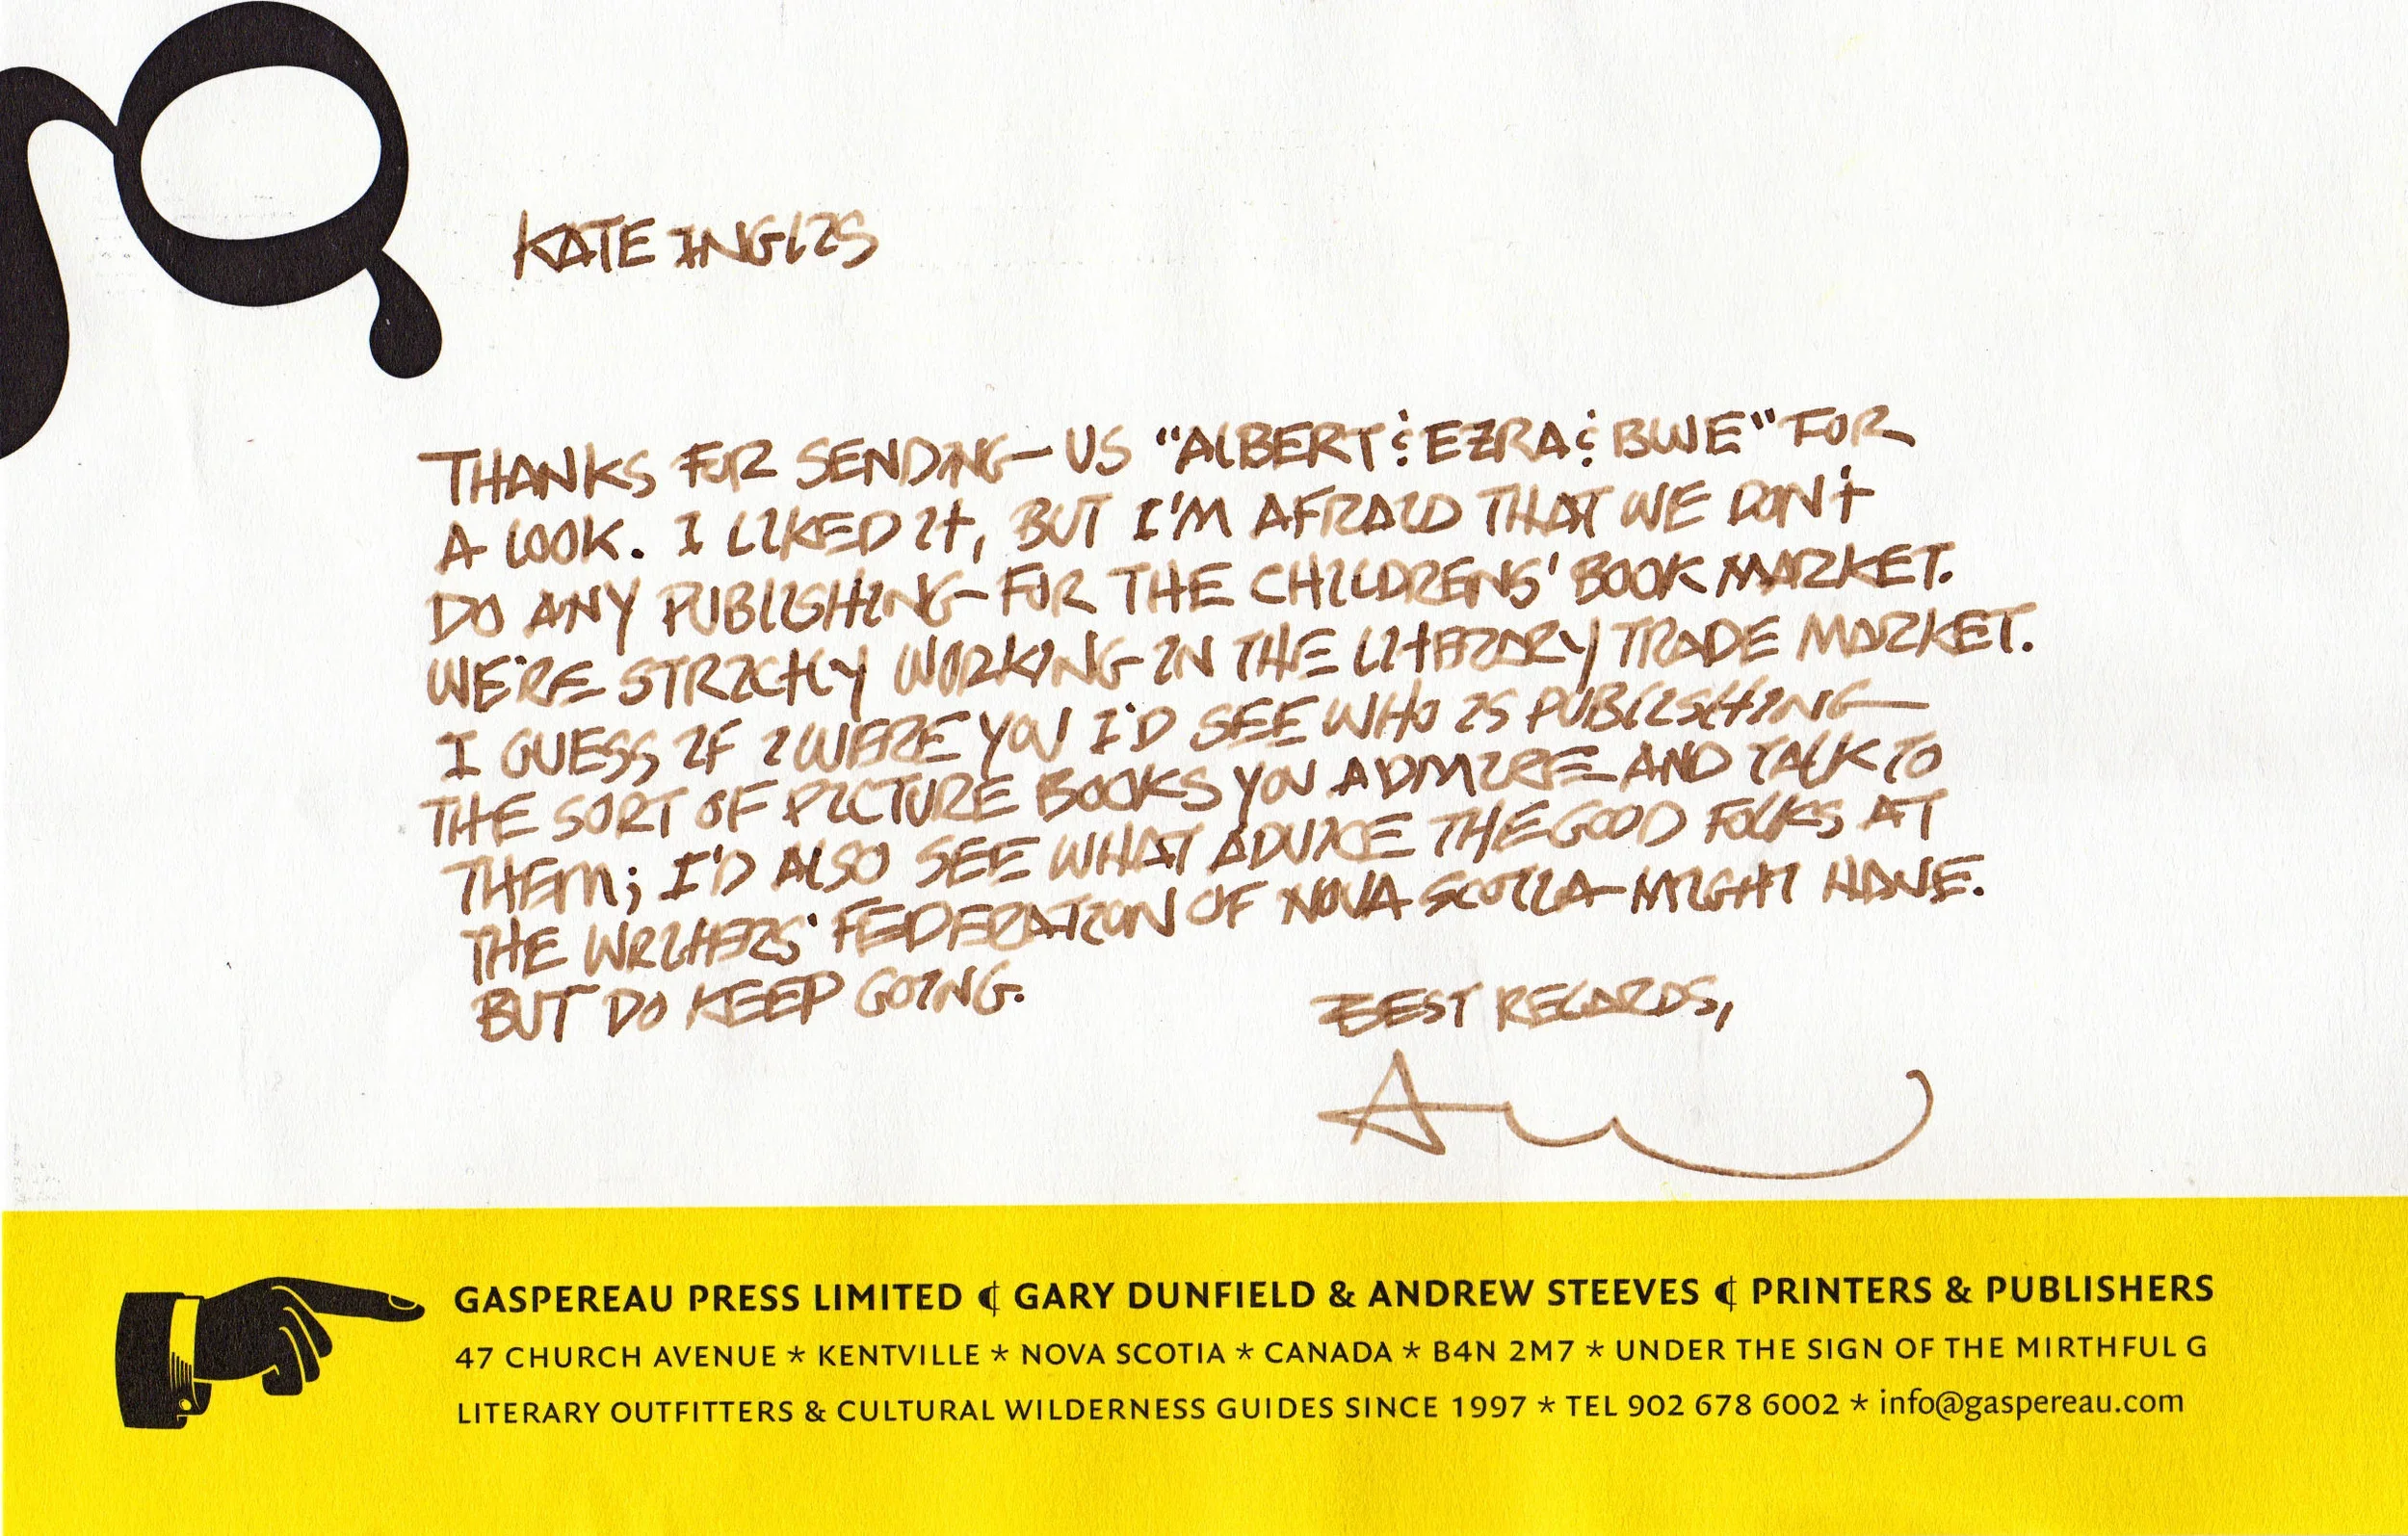 KATE INGLIS
THANKS FOR SENDING US "ALBERT & EZRA & BLUE" FOR
A LOOK. I LIKED IT, BUT I'M AFRAID THAT WE DON'T
DO ANY PUBLISHING FOR THE CHILDRENS' BOOK MARKET.
WE'RE STRICTLY WORKING IN THE LITERARY TRADE MARKET.
I GUESS IF I WERE YOU I'D SEE WHO IS PUBLISHING
THE SORT OF PICTURE BOOKS YOU ADMIRE AND TALK TO
THEM; I'D ALSO SEE WHAT ADVICE THE GOOD FOLKS AT
THE WRITERS' FEDERATION OF NOVA SCOTIA MIGHT HAVE.
BUT DO KEEP GOING.
BEST REGARDS,
GASPEREAU PRESS LIMITED ⸿ GARY DUNFIELD & ANDREW STEEVES ⸿ PRINTERS & PUBLISHERS
47 CHURCH AVENUE * KENTVILLE * NOVA SCOTIA * CANADA * B4N 2M7 * UNDER THE SIGN OF THE MIRTHFUL G
LITERARY OUTFITTERS & CULTURAL WILDERNESS GUIDES SINCE 1997 * TEL 902 678 6002 * info@gaspereau.com